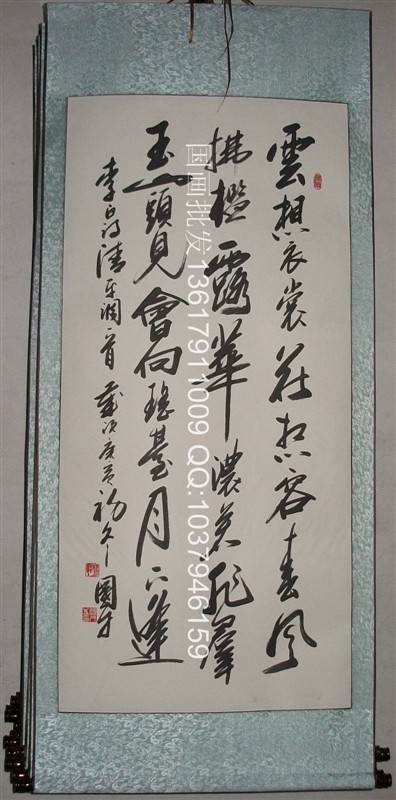 雲想衣裳花想容春風
拂檻露華濃若非羣
玉山頭見會向瑤臺月下逢
李白詩清平調一首歲次庚寅初冬國
国画批发13617911009 QQ:1037946159